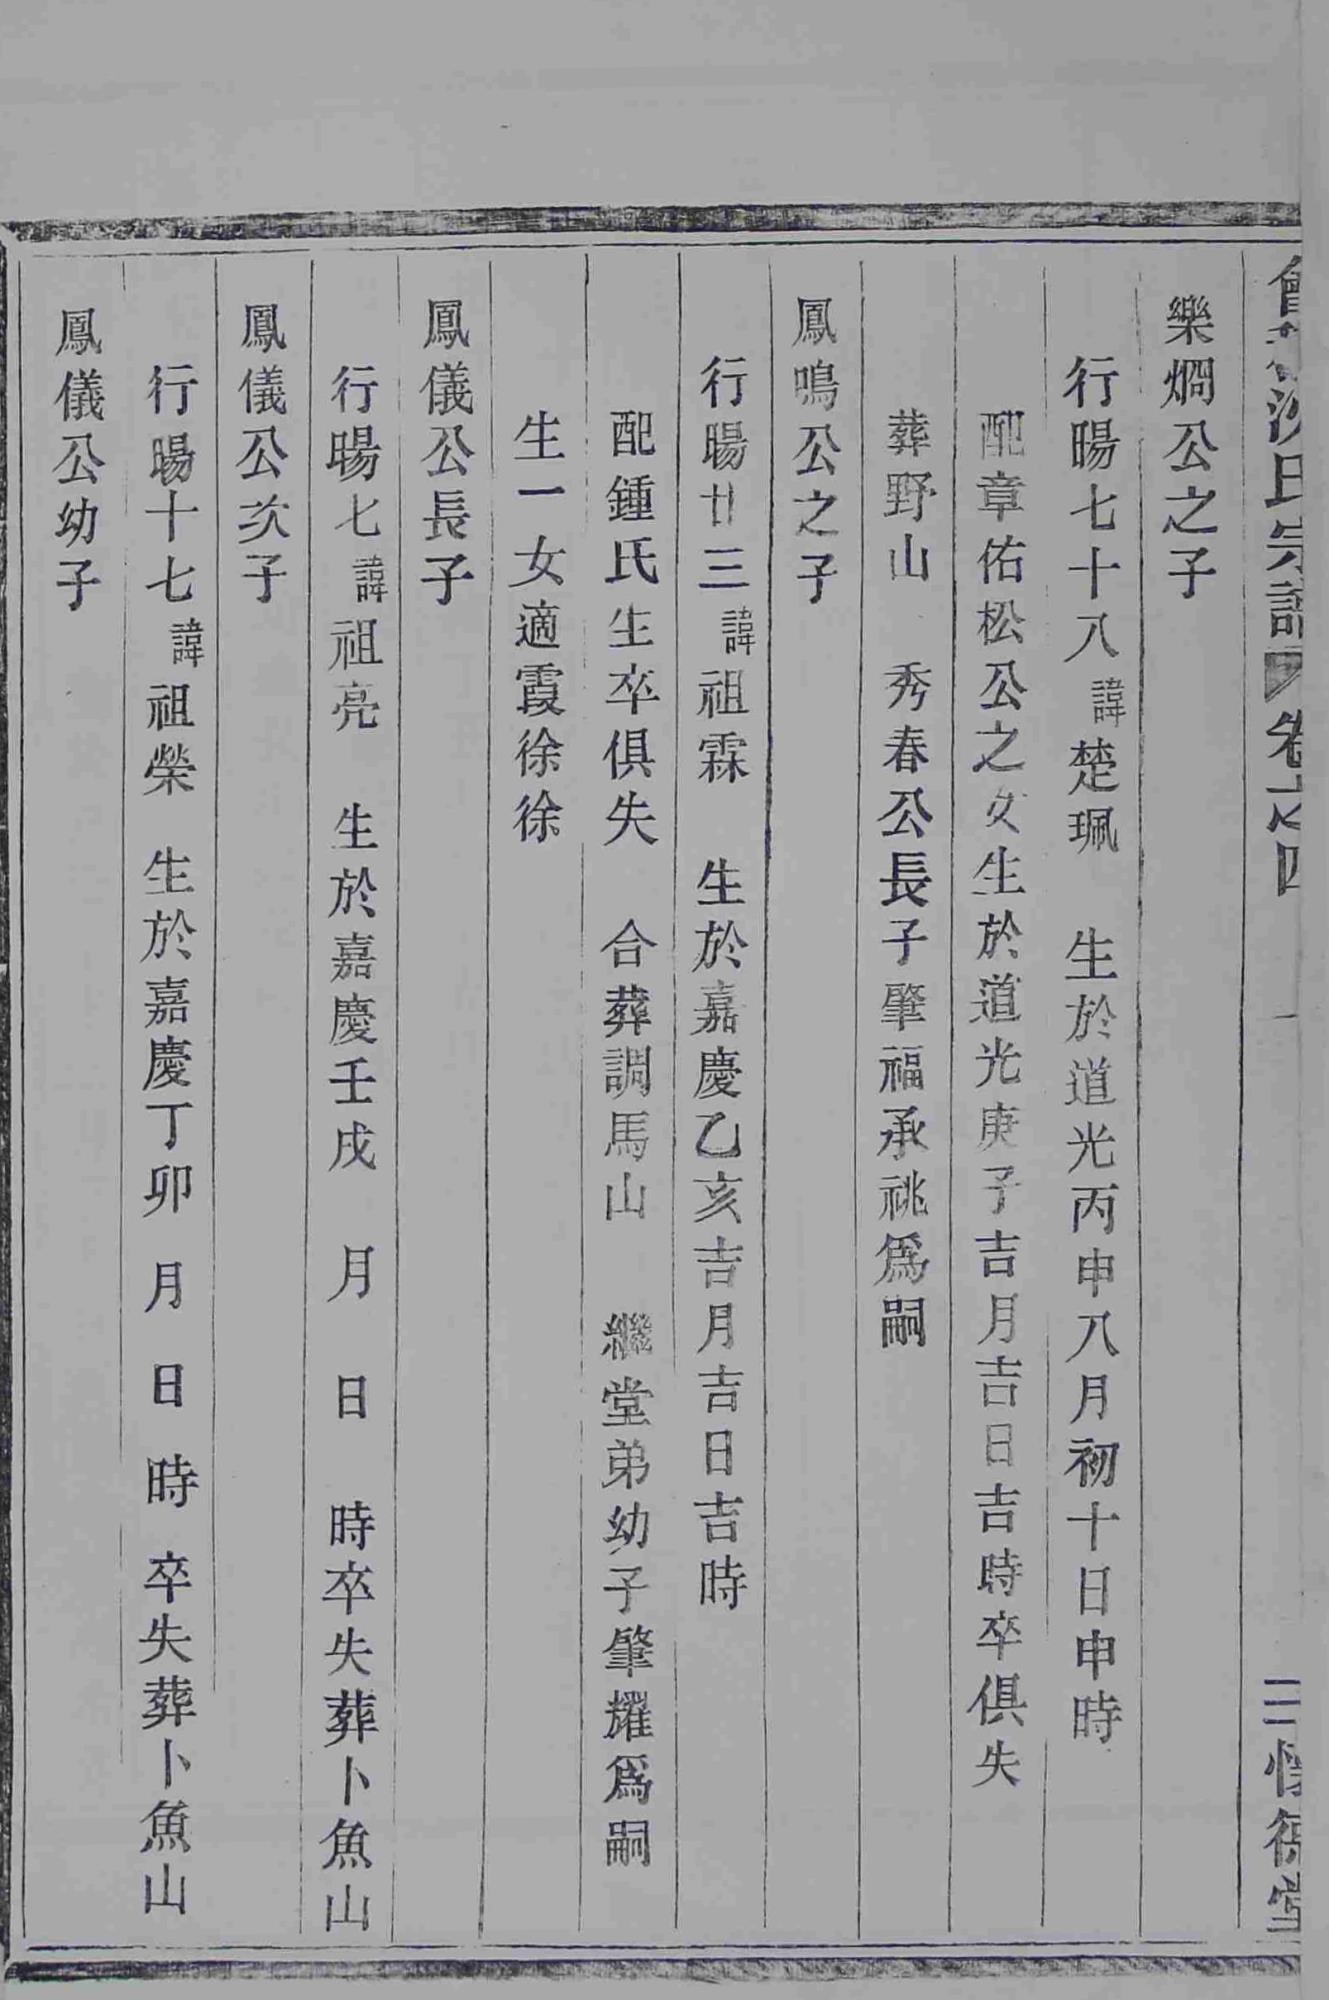 氏宗譜 卷之四 三 惇德堂
樂燗公之子
行暘七十八諱楚珮 生於道光丙申八月初十日申時
配章佑松公之女生於道光庚子吉月吉日吉時卒俱失
葬野山 秀春公長子肇福承祧爲嗣
鳳鳴公之子
行暘廿三諱祖霖 生於嘉慶乙亥吉月吉日吉時
配鍾氏生卒俱失 合葬調馬山 繼堂弟幼子肇耀爲嗣
生一女適霞徐徐
鳳儀公長子
行暘七諱祖亮 生於嘉慶壬戌 月 日 時卒失葬卜魚山
鳳儀公次子
行暘十七諱祖榮 生於嘉慶丁卯 月 日 時 卒失葬卜魚山
鳳儀公幼子